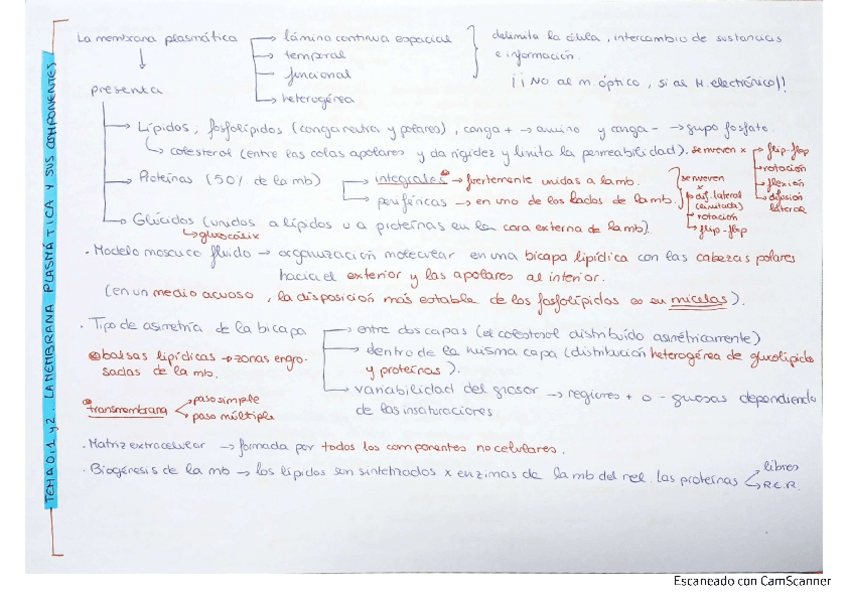 TEMA 0, 1 y 2. LA MEMBRANA PLASMÁTICA Y SUS COMPONENTES
La membrana plasmática → lámina continua espacial
→ temporal
→ funcional
→ heterogénea
delimita la célula, intercambio de sustancias
e información.
¡¡NO al m. óptico, si al M. electrónico!!
presenta
→ Lípidos; fosfolípidos (carga neutra y polares), carga + → amino y carga - → grupo fosfato.
↳ colesterol (entre las colas apolares y da rigidez y limita la permeabilidad). se mueven x
→ flip-flop
→ rotación
→ flexión
→ difusión
lateral
→ Proteínas (50% de la mb)
→ integrales → fuertemente unidas a la mb.
→ periféricas → en uno de los lados de la mb.
se mueven
x
→ dif. lateral
(limitada)
→ rotación
→ flip-flop
→ Glúcidos (unidos a lípidos u a proteínas en la cara externa de la mb).
↳ glucocálix
· Modelo mosaico fluido → organización molecular en una bicapa lipídica con las cabezas polares
hacia el exterior y las apolares al interior.
(en un medio acuoso, la disposición más estable de los fosfolípidos es en micelas).
· Tipo de asimetría de la bicapa
→ entre dos capas (el colesterol distribuido asimétricamente)
→ dentro de la misma capa (distribución heterogénea de glucolípidos
y proteínas).
→ variabilidad del grosor → regiones + o - gruesas dependiendo
de las insaturaciones
balsas lipídicas → zonas engro-
sadas de la mb.
transmembrana
→ paso simple
→ paso múltiple
· Matriz extracelular → formada por todos los componentes no celulares.
· Biogénesis de la mb → los lípidos son sintetizados x enzimas de la mb del rel. las proteínas
→ libres
→ R.E.R.
Escaneado con CamScanner